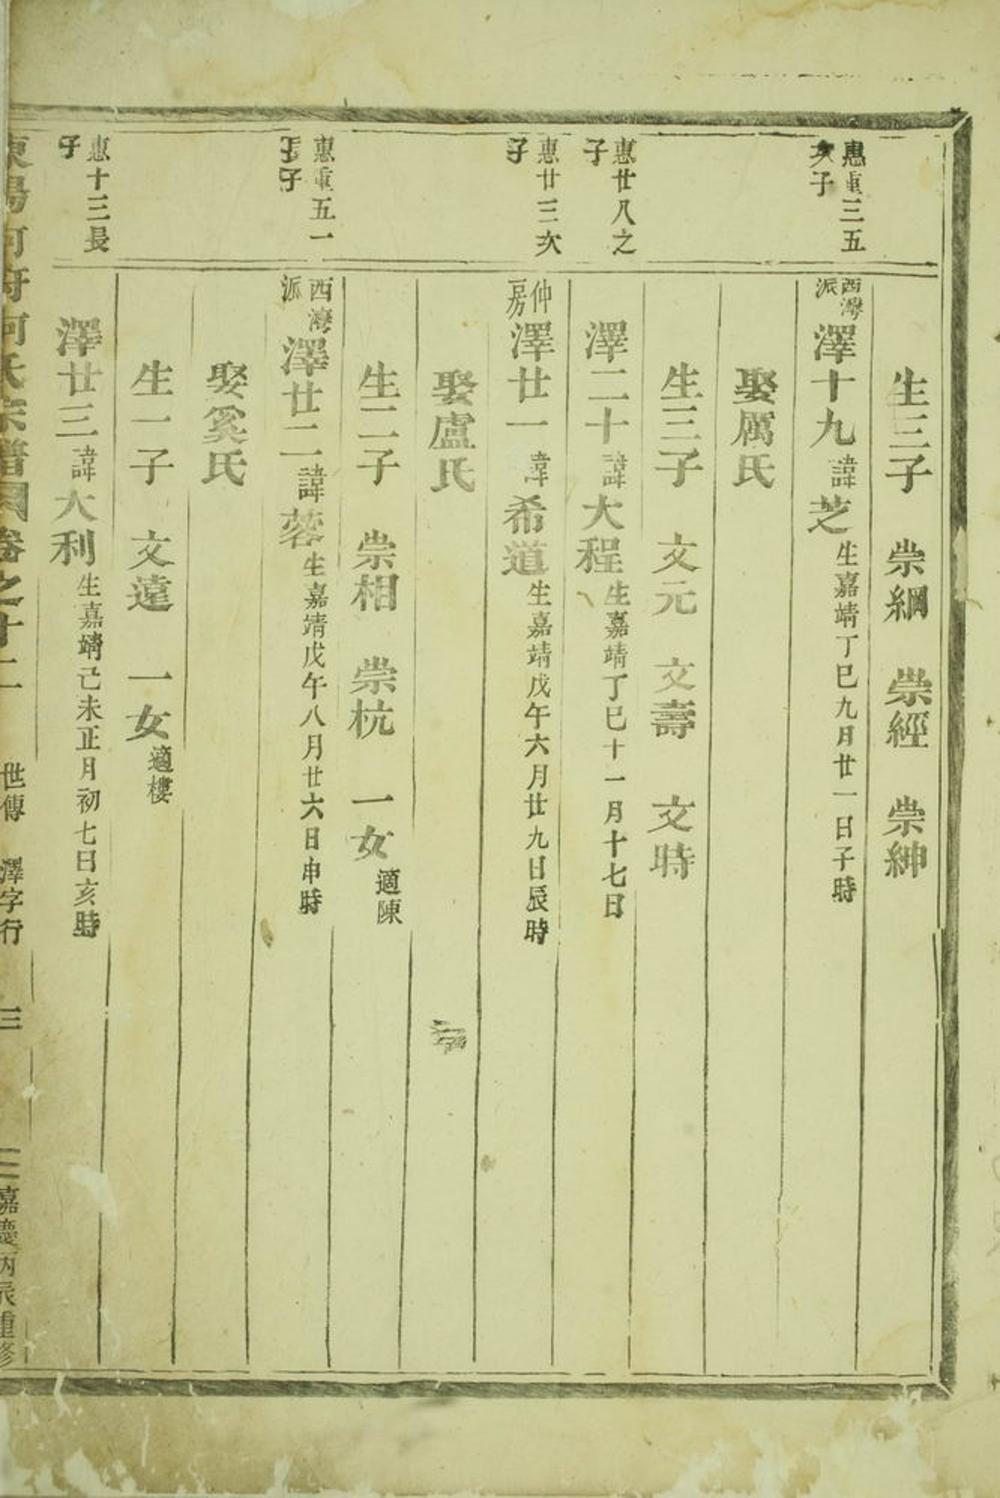 生三子 崇綱 崇經 崇紳
惠重三五次子
西灣派 澤十九 諱芝 生嘉靖丁巳九月廿一日子時
娶厲氏
生三子 文元 文壽 文時
惠廿八之子
澤二十 諱大程 生嘉靖丁巳十一月十七日
惠廿三次子
仲房 澤廿一 諱希道 生嘉靖戊午六月廿九日辰時
娶盧氏
生二子 崇相 崇杭 一女 適陳
惠重五一長子
西灣派 澤廿二 諱蓉 生嘉靖戊午八月廿六日申時
娶奚氏
生一子 文遠 一女 適樓
惠十三長子
澤廿三 諱大利 生嘉靖己未正月初七日亥時
東陽何府何氏宗譜 卷之十二 世傳 澤字行 三 嘉慶丙辰重修